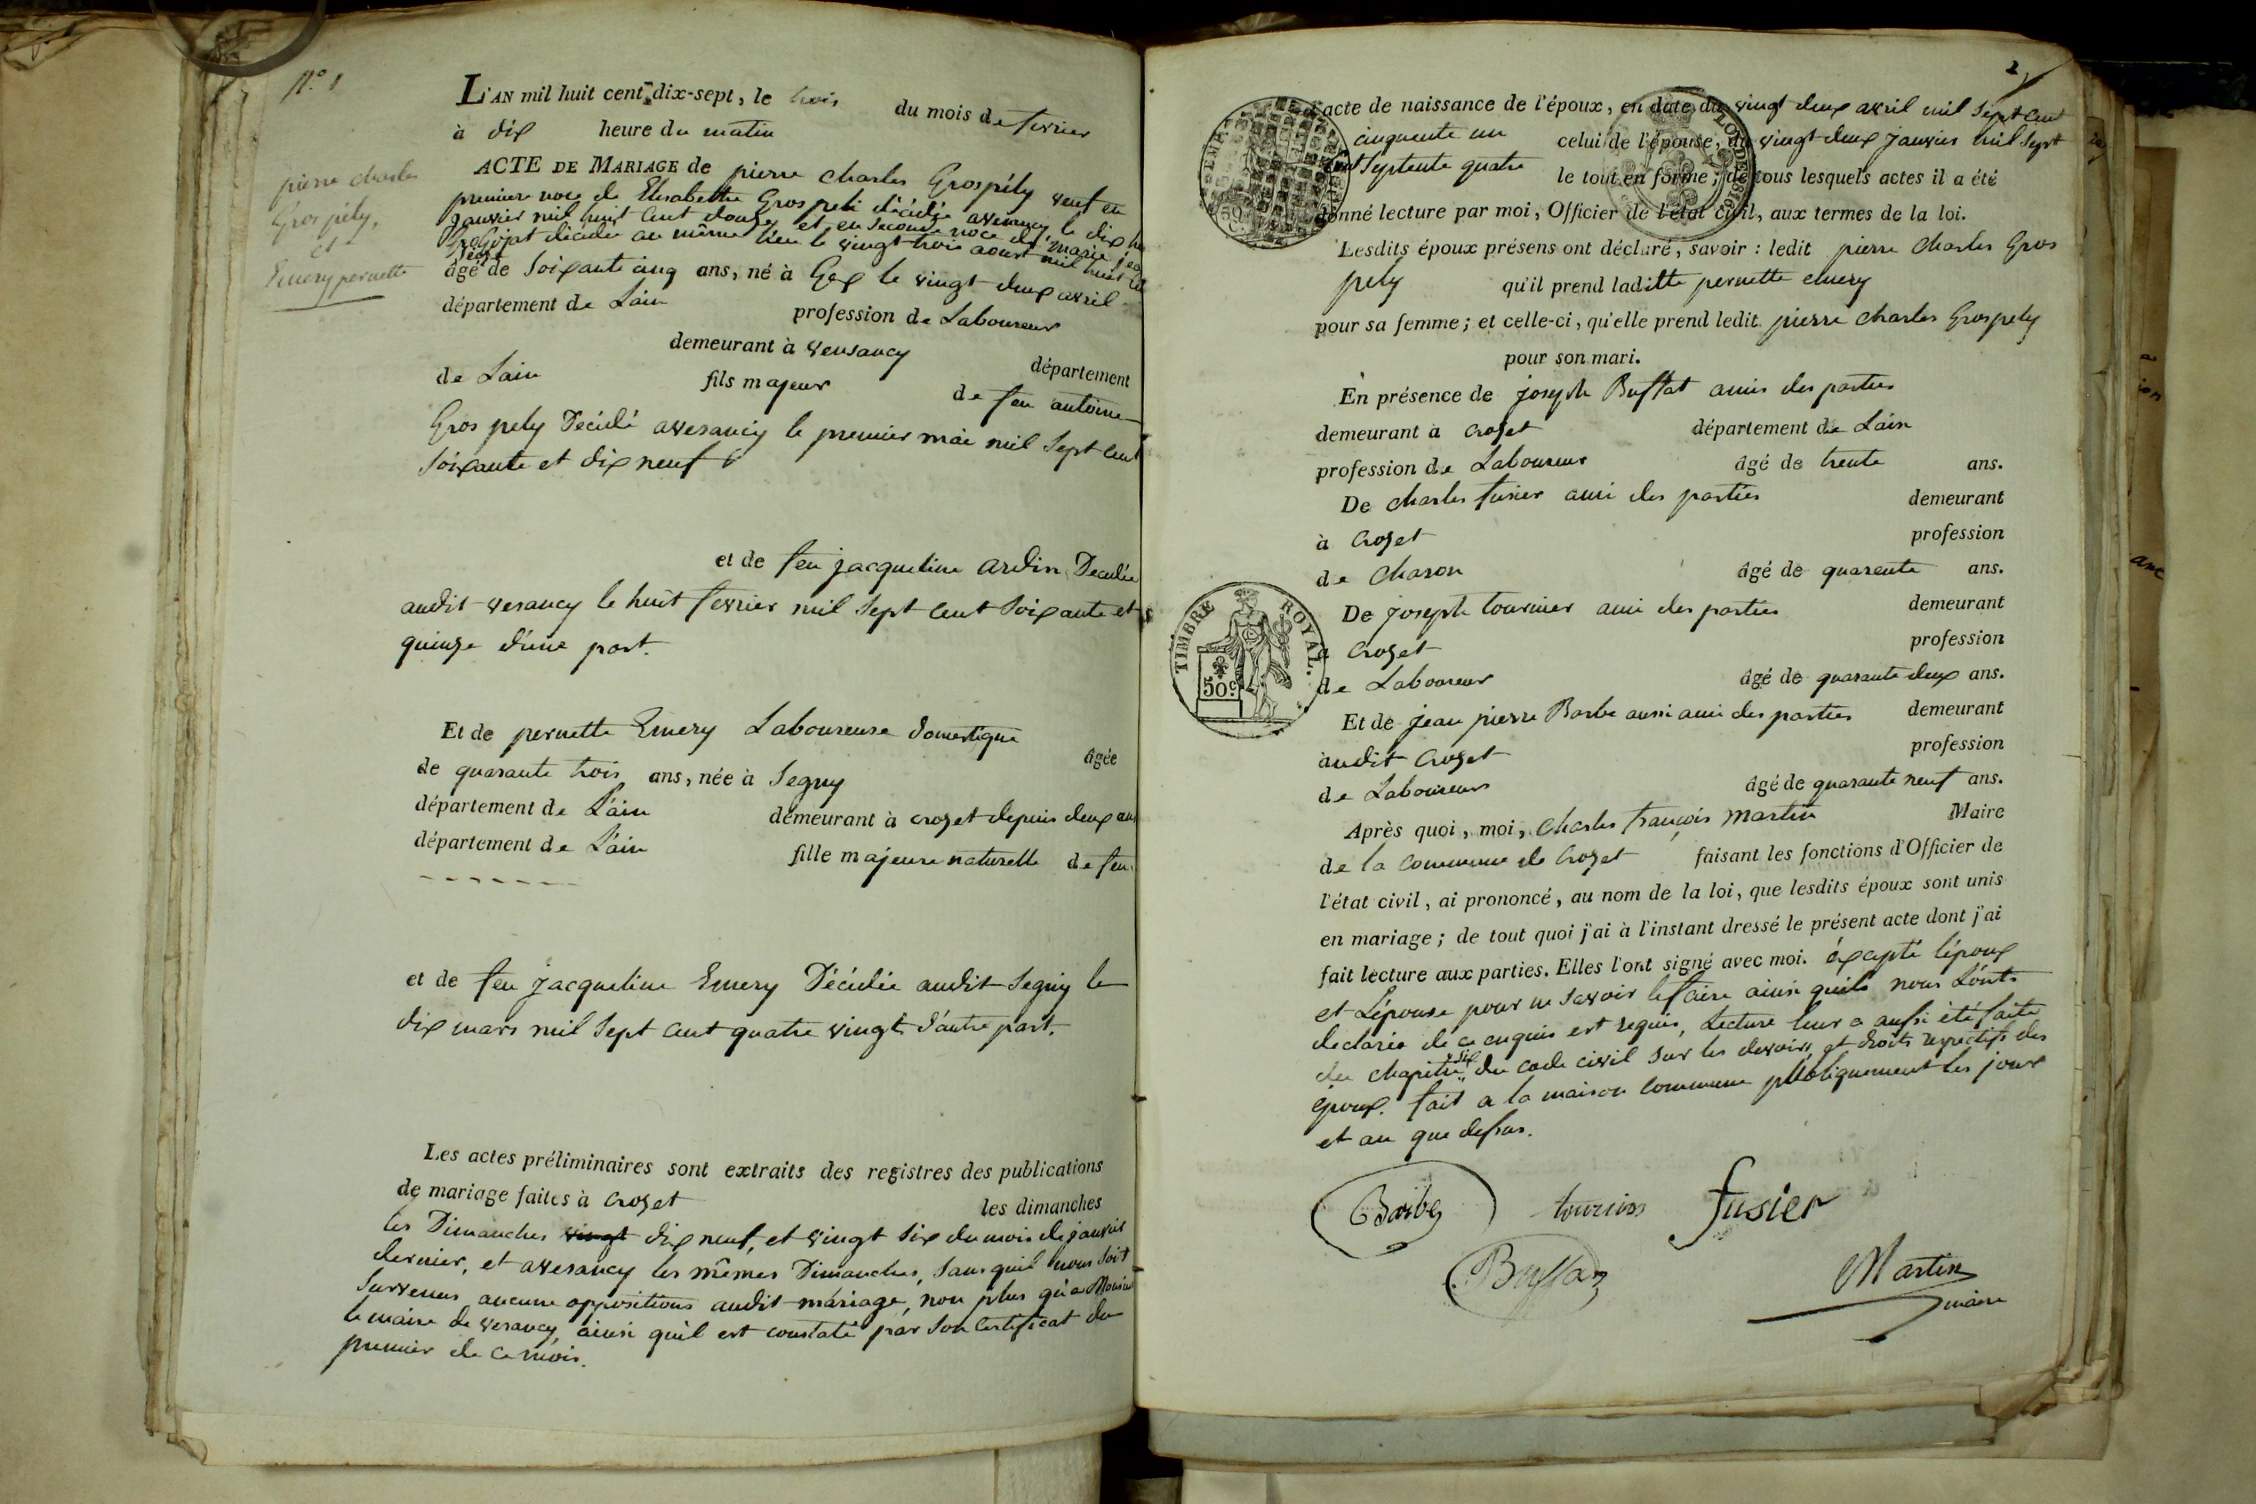 N.° 1
L'AN mil huit cent dix-sept, le trois du mois de fevrier
à dix heure du matin
pierre charles
Grospély,
et
Emery pernette
ACTE DE MARIAGE de pierre charles Grospély veuf en
premiere noce de Elisabethe Gros peli décédée aversancy le dix
janvier mil huit cent douze, et en seconde noce de marie
décédée au même lieu le vingt trois aoust mil huit
âgé de soixante cinq ans, né à Gex le vingt deux avril
département de Lain profession de Laboureur
demeurant à versancy département
de Lain fils majeur de feu antoine
Gros pely Décédé aversancy le premier mai mil sept cent
soixante et dix neuf
et de feu jacqueline ardin Décédée
audit versancy le huit fevrier mil sept cent soixante et
quinze d'une part.
Et de pernette Emery Laboureuse domestique âgée
de quarante trois ans, née à Segny
département de L'ain demeurant à crozet depuis deux ans
département de L'ain fille majeure naturelle de feu
et de feu jacqueline Emery Décédée audit Segny le
dix mars mil sept cent quatre vingt d'autre part.
Les actes préliminaires sont extraits des registres des publications
de mariage faites à crozet les dimanches
les Dimanches vingt dix neuf, et vingt six du mois de janvier
dernier, et aversancy les mêmes Dimanches, sans quil nous soit
survenus aucune oppositions audit mariage, non plus qu'a Monsieur
le maire de versancy, ainsi quil est constaté par son certificat du
premier de ce mois.
2
l'acte de naissance de l'époux, en date du vingt deux avril mil sept cent
cinquente un celui de l'épouse, du vingt deux janvier mil sept
cent septente quatre le tout en forme; de tous lesquels actes il a été
donné lecture par moi, Officier de l'état civil, aux termes de la loi.
Lesdits époux présens ont déclaré, savoir: ledit pierre charles Gros
pely qu'il prend laditte pernette emery
pour sa femme; et celle-ci, qu'elle prend ledit pierre charles Grospely
pour son mari.
En présence de joseph Buffat amis des parties
demeurant à crozet département de L'ain
profession de Laboureur âgé de trente ans.
De charles fusier ami des parties demeurant
à crozet profession
de charon âgé de quarente ans.
De joseph tournier ami des parties demeurant
TIMBRE ROYAL.
50c
à crozet profession
de Laboureur âgé de quarante deux ans.
Et de jean pierre Barbe aussi ami des parties demeurant
audit crozet profession
de Laboureur âgé de quarante neuf ans.
Après quoi, moi, charles françois martin Maire
de la commune de crozet faisant les fonctions d'Officier de
l'état civil, ai prononcé, au nom de la loi, que lesdits époux sont unis
en mariage; de tout quoi j'ai à l'instant dressé le présent acte dont j'ai
fait lecture aux parties. Elles l'ont signé avec moi. éxcepté l'époux
et L'épouse pour ne savoir le faire ainsi quils nous L'ont
declarés de ce enquis est requis, Lecture leur a aussi été faite
du chapitre six du code civil sur les devoirs et droits respectifs des
époux. fait a la maison commune publiquement les jour
et an que dessus.
Barbe tournier fusier
Buffaz
Martin
maire